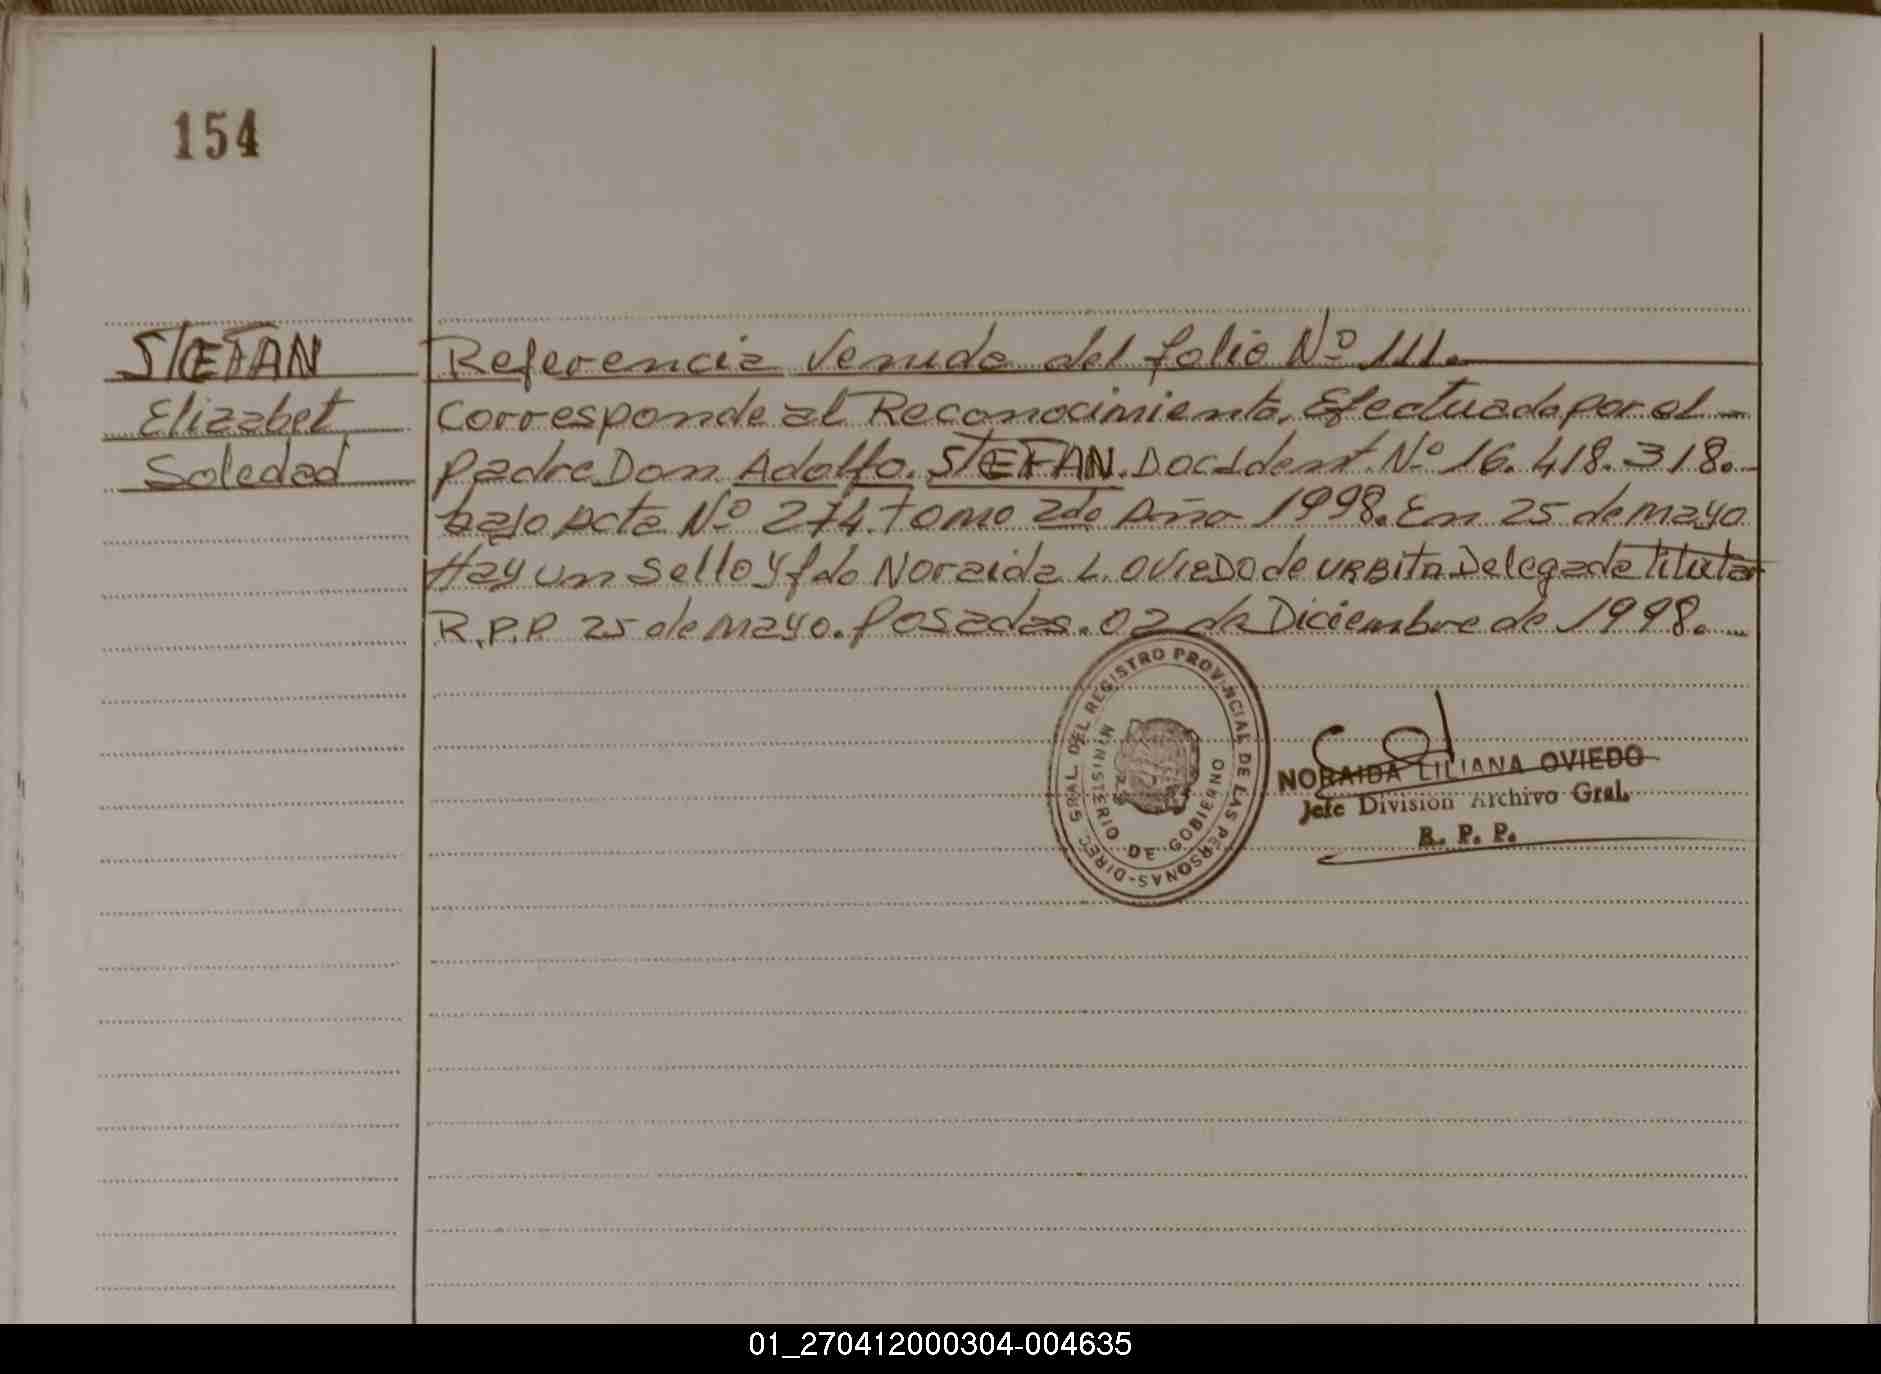 154
STEFAN
Elizabet
Soledad
Referencia Venida del folio Nº 111.
Corresponde al Reconocimiento, Efectuado por el
padre Don Adolfo. STEFAN. Doc. Ident. Nº 16.418.318.
bajo Acta Nº 274. Tomo 2do Año 1998. En 25 de mayo
Hay un sello y fdo Noraida L. OVIEDO de URBITA Delegada titular
R.P.P. 25 de mayo. Posadas. 02 de Diciembre de 1998.
DIREC. GRAL. DEL REGISTRO PROVINCIAL DE LAS PERSONAS
MINISTERIO DE GOBIERNO
NORAIDA LILIANA OVIEDO
Jefe Division Archivo Gral.
R. P. P.
01_270412000304-004635